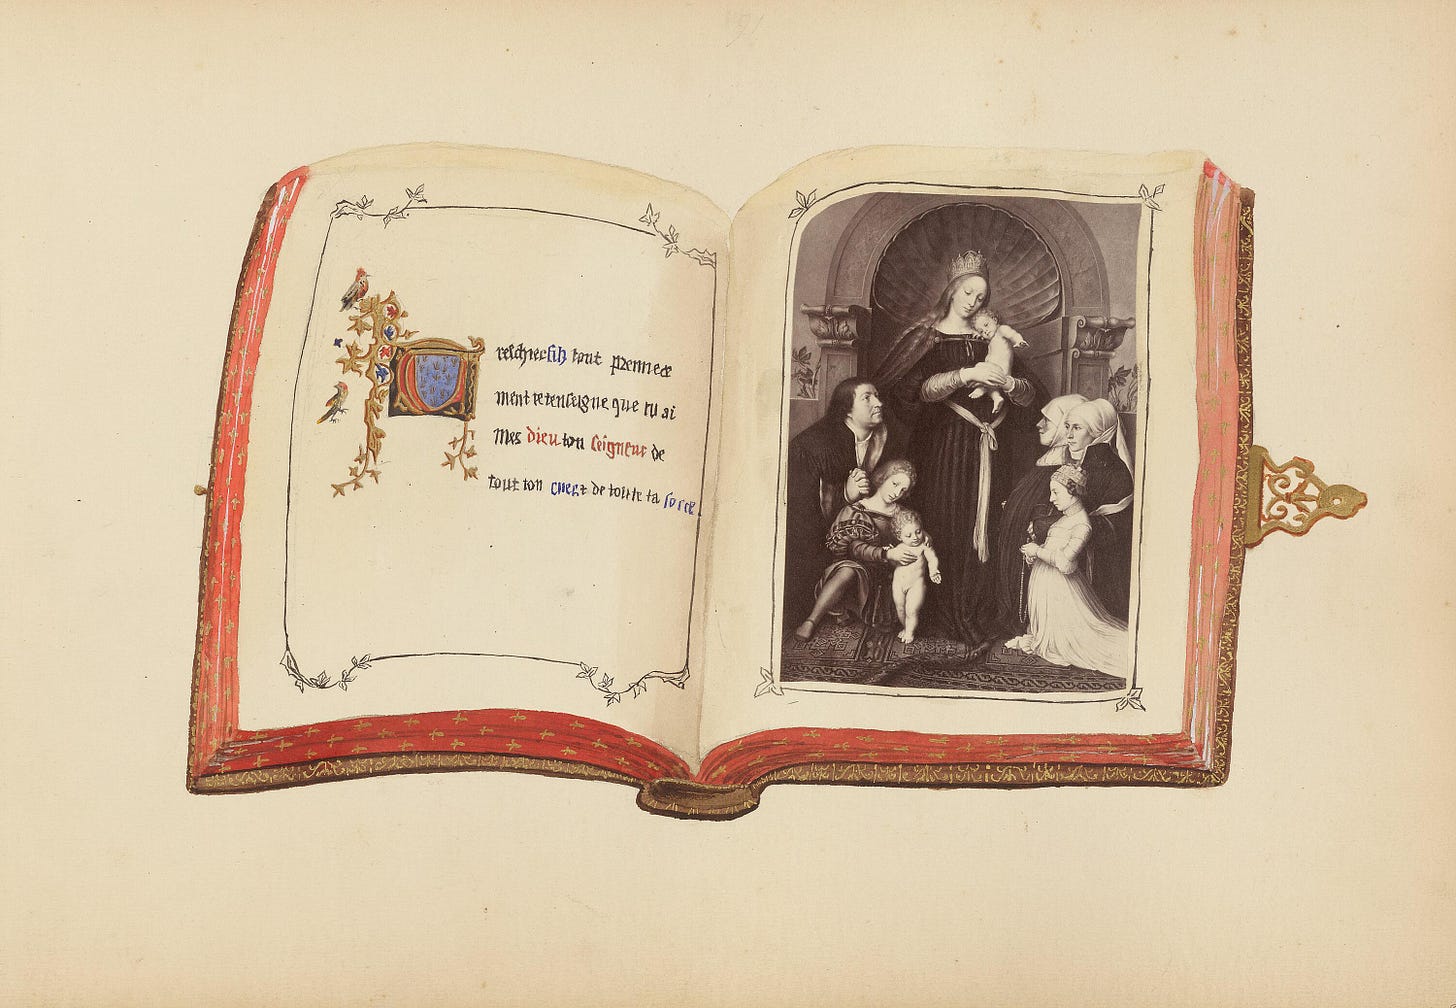 tout premiere
ment te tenseigne que tu ai
mes dieu ton seigneur de
tout ton cuer & de toute ta force